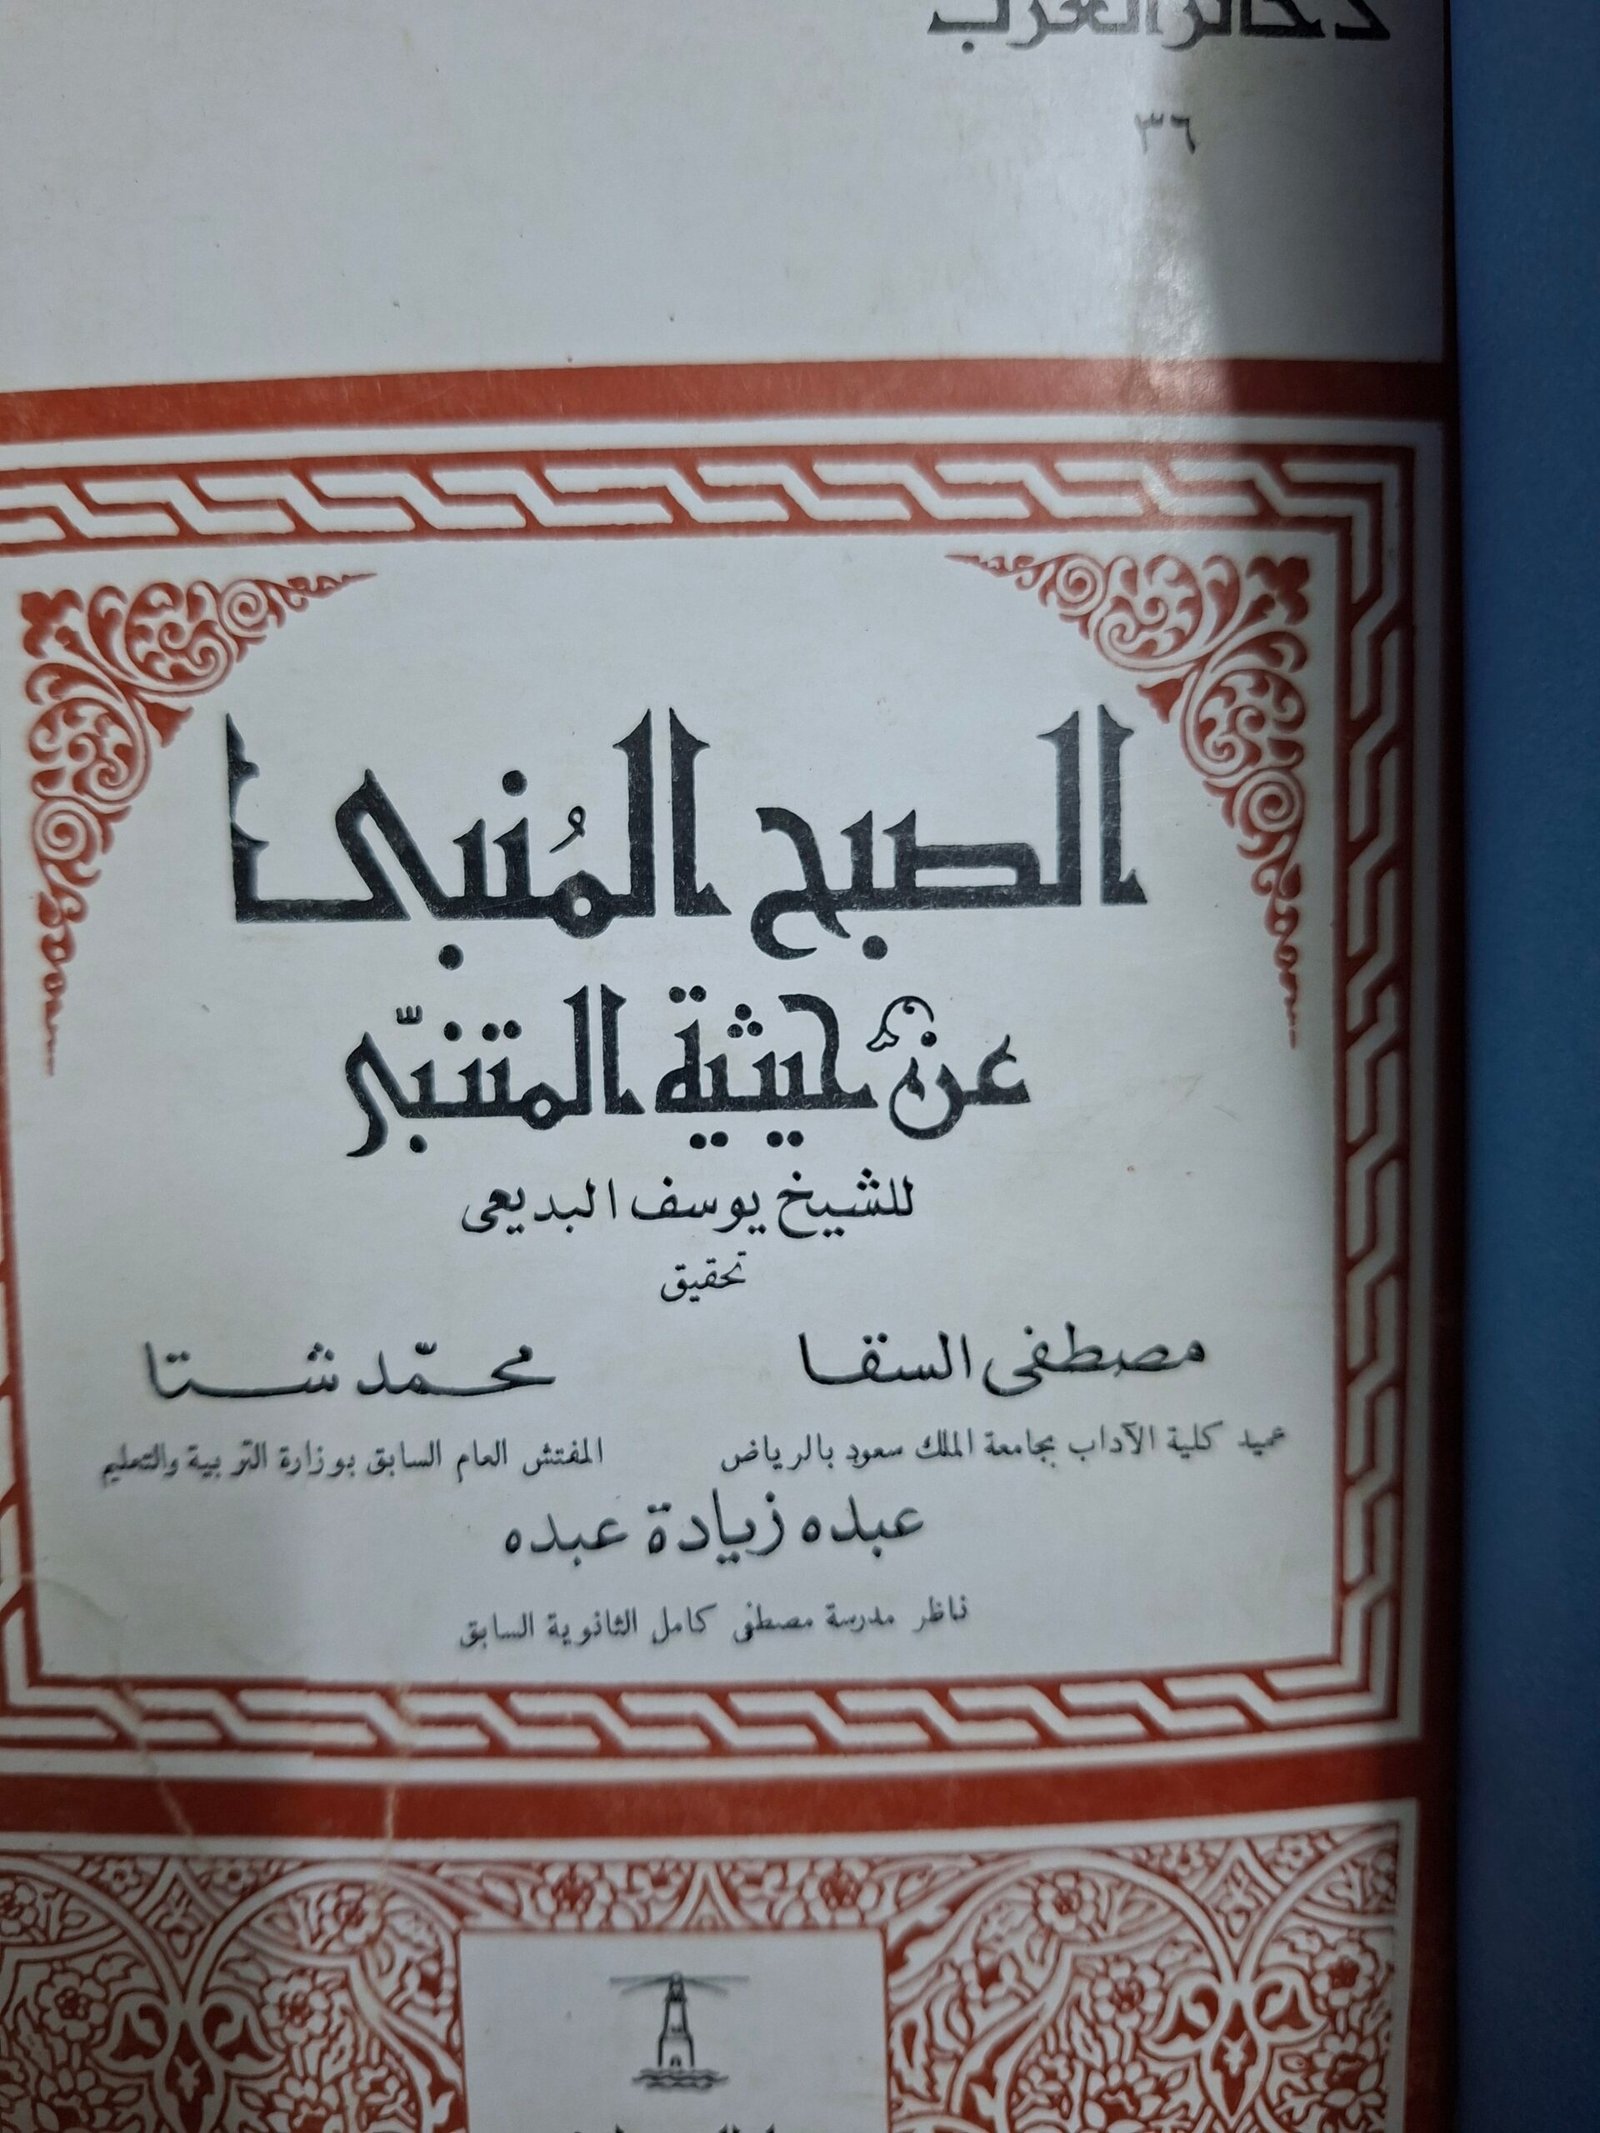 ذخائر العرب
٣٦
الصبح المُنبى
عن حيثية المتنبّى
للشيخ يوسف البديعى
تحقيق
مصطفى السقا محمّد شتا
عميد كلية الآداب بجامعة الملك سعود بالرياض المفتش العام السابق بوزارة التربية والتعليم
عبده زيادة عبده
ناظر مدرسة مصطفى كامل الثانوية السابق